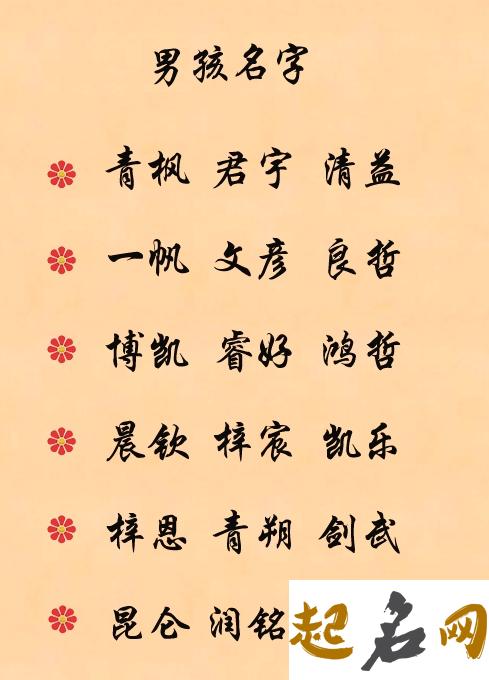 男孩名字
青枫 君宇 清益
一帆 文彦 良哲
博凯 睿好 鸿哲
晨钦 梓宸 凯乐
梓恩 青朔 剑武
昆仑 润铭
起名网